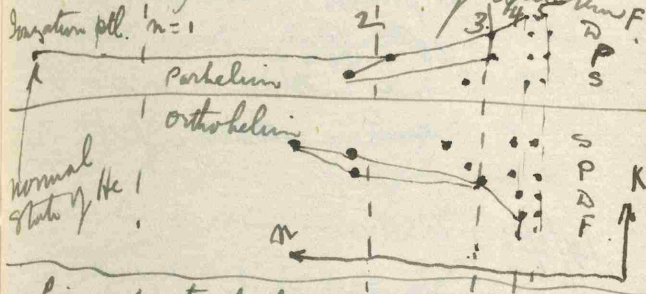 Ionization ptl. n=1 2 3 4 5 F
D
P
Parhelium S
Orthohelium
S
normal P
state of He D
F
K
n